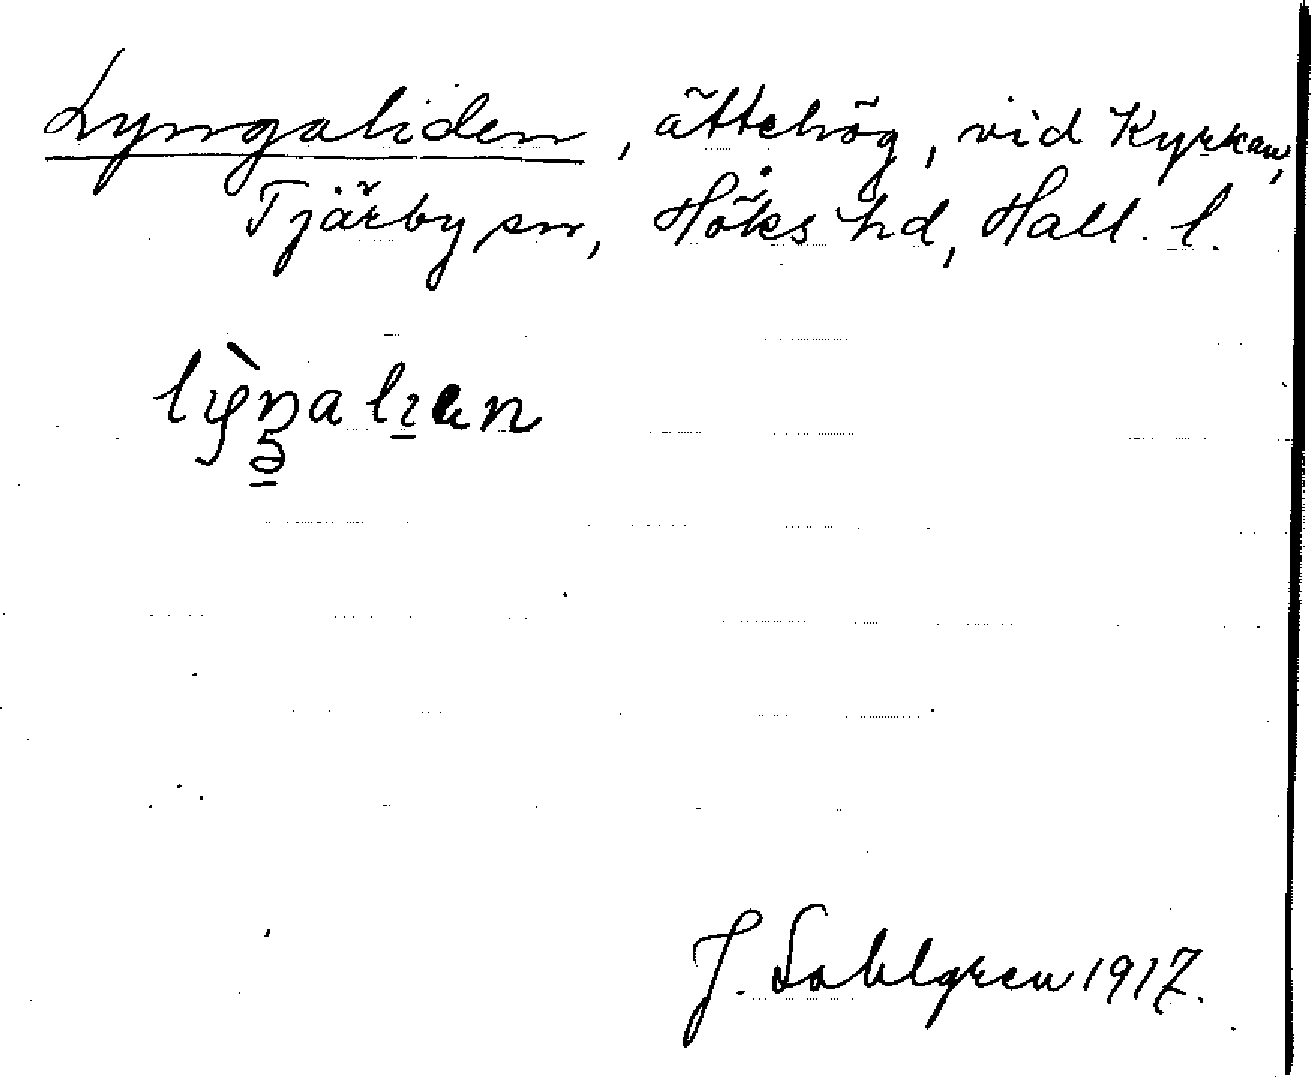 Lyngaliden, ättehög, vid Kyrkan,
Tjärby sn, Höks hd, Hall. l.
J. Sahlgren 1917.